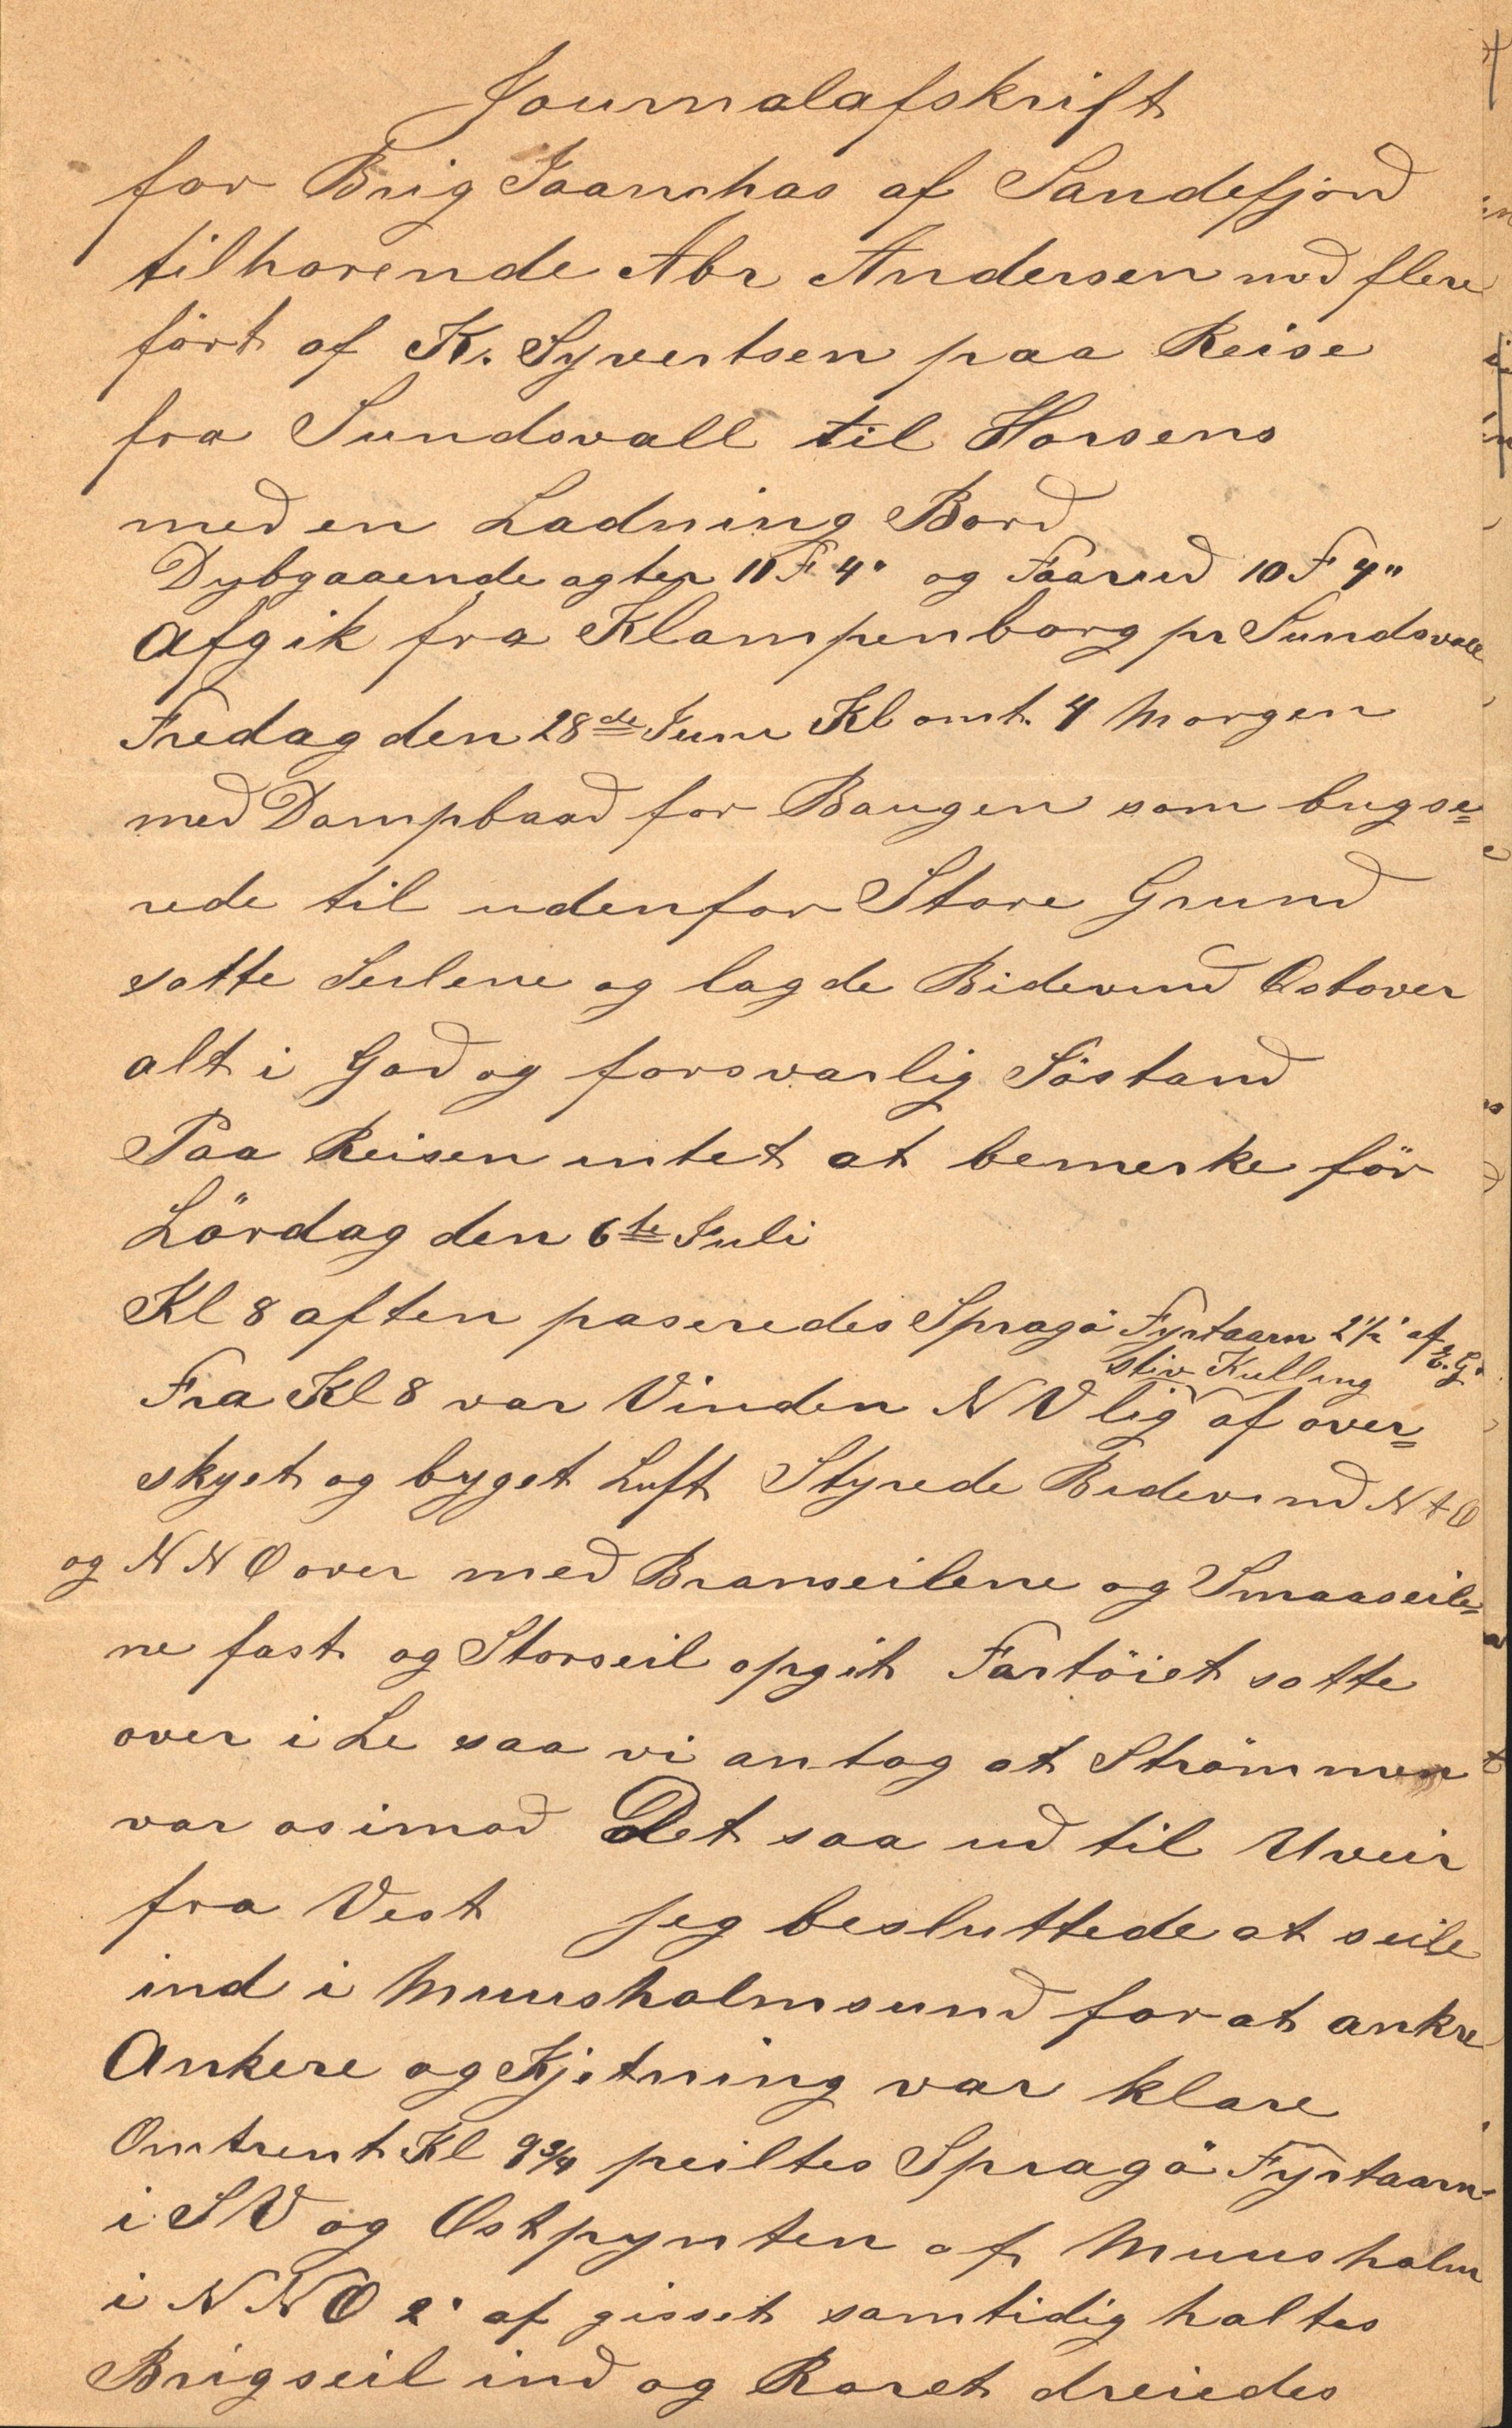 Journalafskrift
for Brig Jaamhas af Sandefjord
tilhorende Abr Andersen med flere
fört af K. Syvertsen paa Reise
fra Sundsvall til Horsens
med en Ladning Bord
Dybgaaende agter 11 F 4" og Foarud 10 F 4"
Afgik fra Klampenborg pr Sundsvall
Fredag den 28de Juni Kl omt. 4 Morgen
med Dampbaad for Baugen som bugse=
rede til udenfor Store Grund
satte Seilene og lagde Bidevind Ostover
alt i God og forsvarlig Söstand
Paa Reisen intet at bemerke för
Lördag den 6te Juli
Kl 8 aften paseredes Sprogö Fyrtaarn 2½' af E. G.
Fra Kl 8 var Vinden N V lig stiv Kulling af over=
skyet og byget Luft Styrede Bidevind N t O
og N N O over med Bramseilene og Smaaseile=
ne fast og Storseil opgit Fartöiet satte
over i Le saa vi antog at Strömmen
var os imod Det saa ud til Uveir
fra Vest jeg besluttede at seile
ind i Muusholmsund for at ankre
Ankere og Kjetning var klare
Omtrent Kl 9¾ peiltes Sprogö Fyrtaarn
i S V og Ostpynten af Muusholm
i N N O 2' af gisset samtidig haltes
Brigseil ind og Roret dreiedes